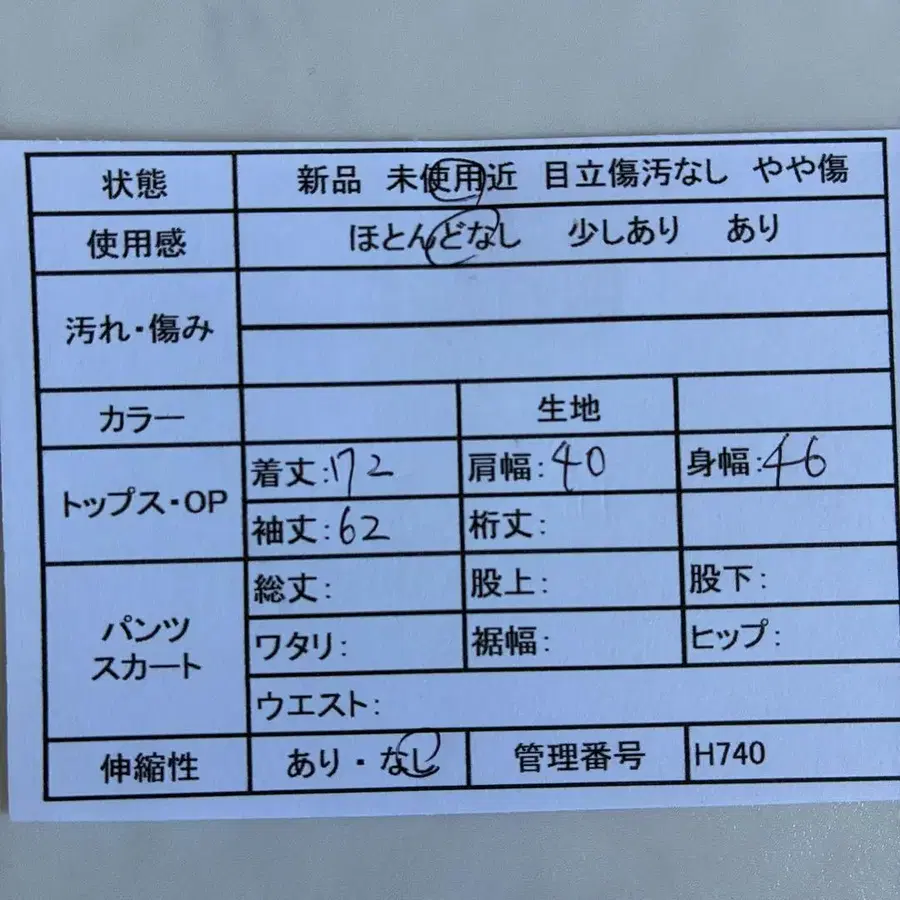 状態 新品 未使用近 目立傷汚なし やや傷
使用感 ほとんどなし 少しあり あり
汚れ・傷み
カラー 生地
トップス・OP 着丈:172 肩幅:40 身幅:46
袖丈:62 裄丈:
パンツ
スカート
総丈: 股上: 股下:
ワタリ: 裾幅: ヒップ:
ウエスト:
伸縮性 あり・なし 管理番号 H740